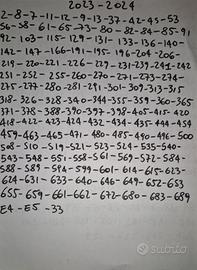 2023-2024
2-8-7-11-12-9-13-37-42-45-53
56-58-61-65-73-80-82-84-85-91
92-103-115-129-131-133-136-140-
142-147-166-191-195-196-204-206-
219-220-221-226-229-231-239-241-242
251-252-255-260-270-271-273-274-
275-277-280-281-291-301-309-313-315
318-326-328-340-344-355-359-360-365
371-378-388-390-397-398-405-415-420
418-422-423-424-432-434-435-444-454
459-463-465-471-480-485-490-496-500
508-510-519-521-523-524-535-540-
543-548-551-558-561-569-572-584-
588-589-594-599-601-614-615-623-
624-631-633-640-646-649-652-653
655-659-661-662-672-680-683-689
E4-E5-33
subito